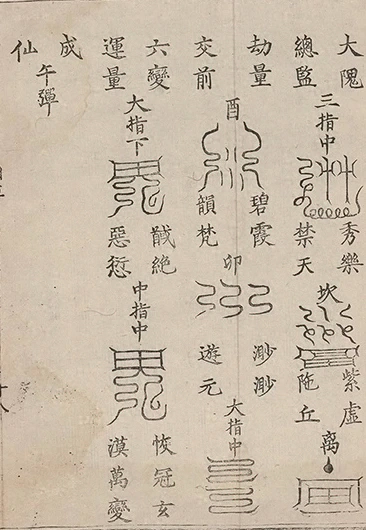 大隗
總監
三指中
秀樂
禁天
坎
紫虛
陁丘
离
劫量
交前
酉
碧霞
韻梵
卯
渺渺
遊元
大指中
六變
運量
大指下
馘絕
惡愆
中指中
恢冠玄
漠萬變
成
仙
午彈